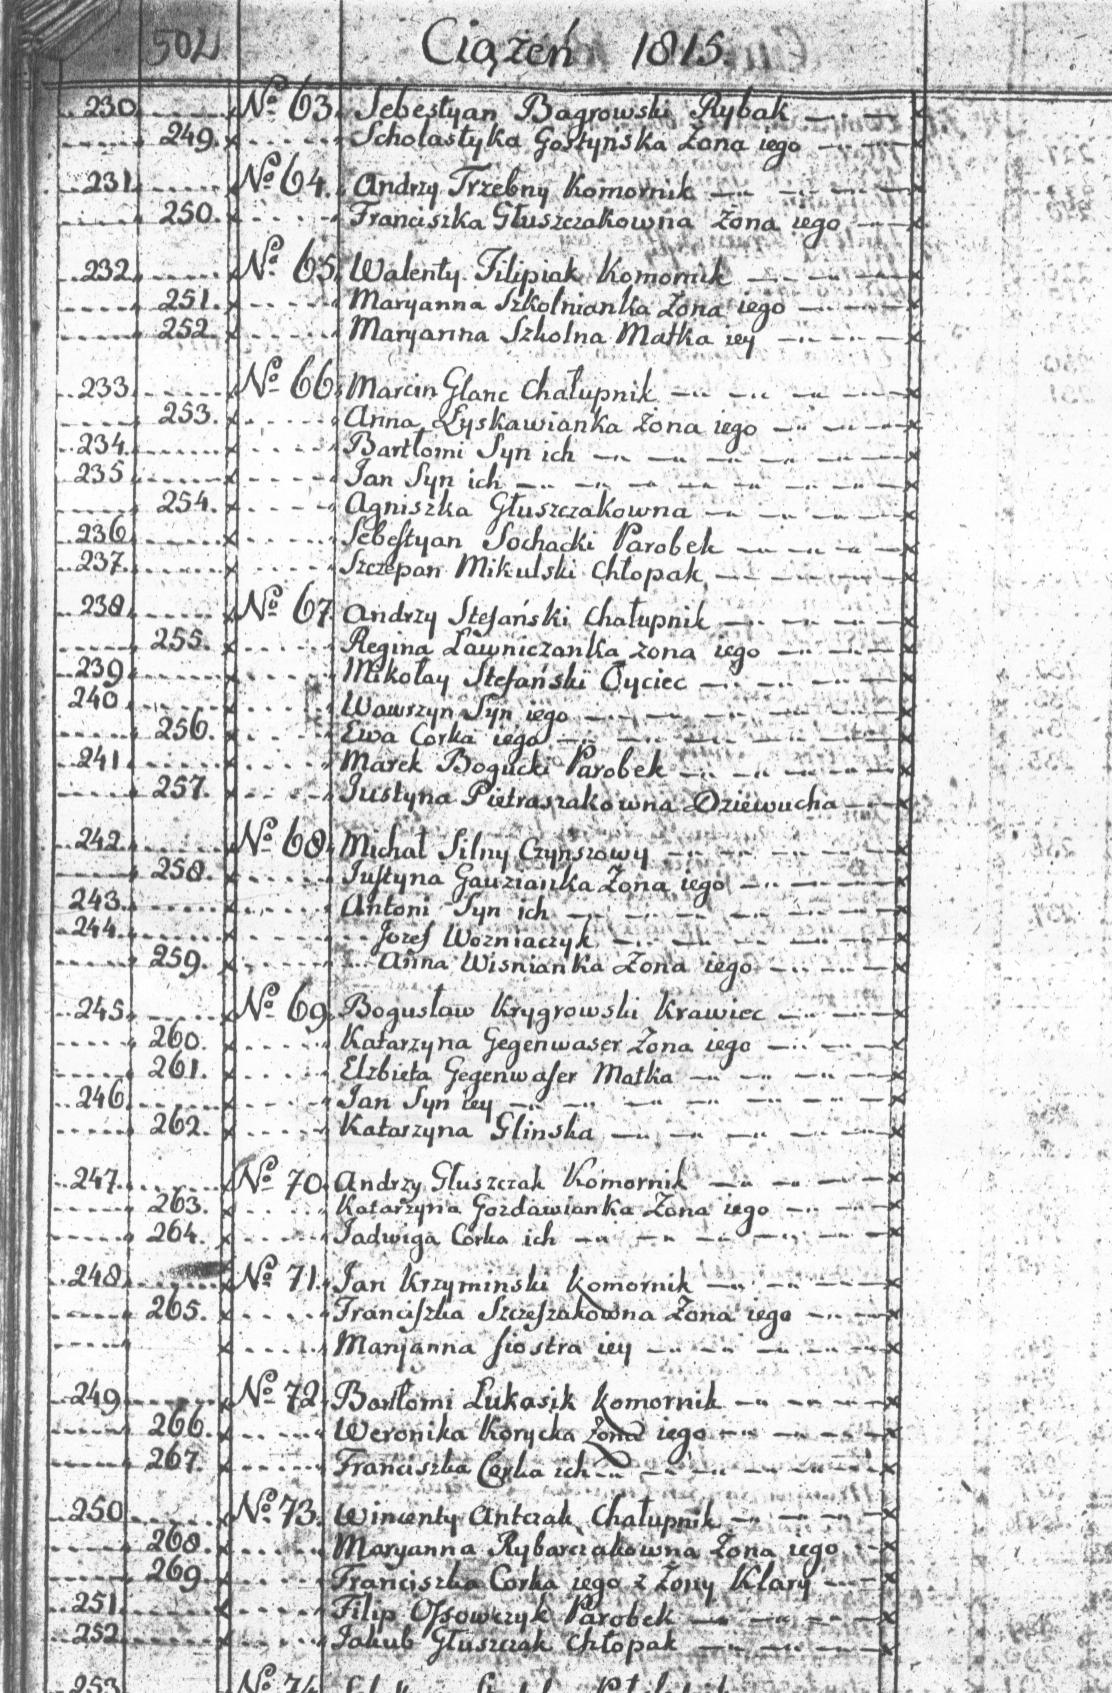 502 Ciążeń 1815.
230 No 63. Sebestyan Bagrowski Rybak
249. Scholastyka Gostynska Zona iego
231. No 64. Andrzy Trzebny Komornik
250. Franciszka Głuszczakowna Zona iego
232. No 65. Walenty Filipiak Komornik
251. Maryanna Szkolnianka Zona iego
252. Maryanna Szkolna Matka iey
233 No 66. Marcin Glanc Chałupnik
253. Anna Łyskawianka Zona iego
234. Bartłomi Syn ich
235 Jan Syn ich
254. Agniszka Głuszczakowna
236 Sebestyan Sochacki Parobek
237. Szczepan Mikulski Chłopak
238 No 67. Andrzy Stefański Chałupnik
255. Regina Ławniczanka zona iego
239 Mikołay Stefański Oyciec
240 Wawrzyn Syn iego
256. Ewa Corka iego
241 Marek Bogucki Parobek
257. Justyna Pietraszakowna Dziewucha
242. No 68. Michał Silny Czynszowy
258. Justyna Gauzianka Zona iego
243 Antoni Syn ich
244. Jozef Wozniaczyk
259. Anna Wisnianka Zona iego
245. No 69. Bogusław Krygrowski Krawiec
260. Katarzyna Gegenwaser Zona iego
261. Elzbieta Gegenwaser Matka
246 Jan Syn iey
262. Katarzyna Glinska
247. No 70. Andrzy Głuszczak Komornik
263. Katarzyna Gozdawianka Zona iego
264. Jadwiga Corka ich
248 No 71. Jan Krzyminski Komornik
265. Franciszka Szczeszakowna Zona iego
Maryanna siostra iey
249 No 72. Bartłomi Łukasik Komornik
266 Weronika Korycka Zona iego
267. Franciszka Corka ich
250 No 73. Wincenty Antczak Chałupnik
268 Maryanna Rybarczakowna Zona iego
269 Franciszka Corka iego z Zony Klary
251. Filip Ossowczyk Parobek
252 Jakub Głuszczak Chłopak
253 No 74.